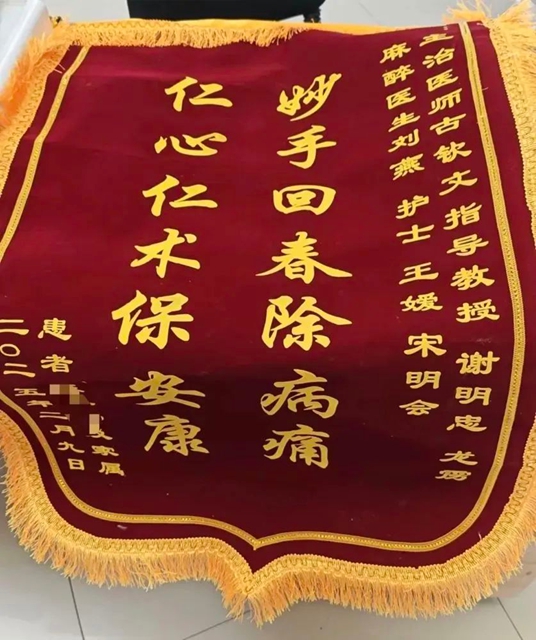 主治医师古钦文 指导教授 谢明忠 龙丽
麻醉医生刘燕 护士 王媛 宋明会
妙手回春除病痛
仁心仁术保安康
患者 家属
二〇二五年二月九日